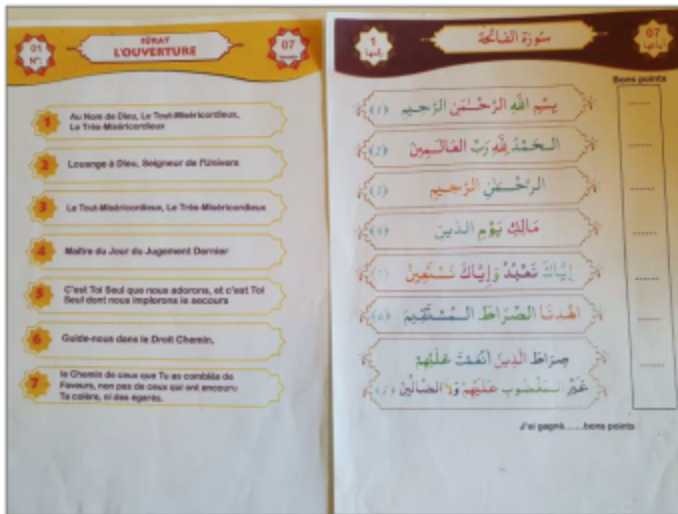 01
N°:
SÛRAT
L'OUVERTURE
07
1
Au Nom de Dieu, Le Tout-Miséricordieux,
Le Très-Miséricordieux
2
Louange à Dieu, Seigneur de l'Univers
3
Le Tout-Miséricordieux, Le Très-Miséricordieux
4
Maître du Jour du Jugement Dernier
5
C'est Toi Seul que nous adorons, et c'est Toi
Seul dont nous implorons le secours
6
Guide-nous dans le Droit Chemin,
7
le Chemin de ceux que Tu as comblés de
Faveurs, non pas de ceux qui ont encouru
Ta colère, ni des égarés.
1
سورة الفاتحة
07
Bons points
بِسْمِ اللَّهِ الرَّحْمَٰنِ الرَّحِيمِ (1)
الْحَمْدُ لِلَّهِ رَبِّ الْعَالَمِينَ (2)
الرَّحْمَٰنِ الرَّحِيمِ (3)
مَالِكِ يَوْمِ الدِّينِ
إِيَّاكَ نَعْبُدُ وَإِيَّاكَ نَسْتَعِينُ
اهْدِنَا الصِّرَاطَ الْمُسْتَقِيمَ (6)
صِرَاطَ الَّذِينَ أَنْعَمْتَ عَلَيْهِمْ
غَيْرِ الْمَغْضُوبِ عَلَيْهِمْ وَلَا الضَّالِّينَ
J'ai gagné......bons points